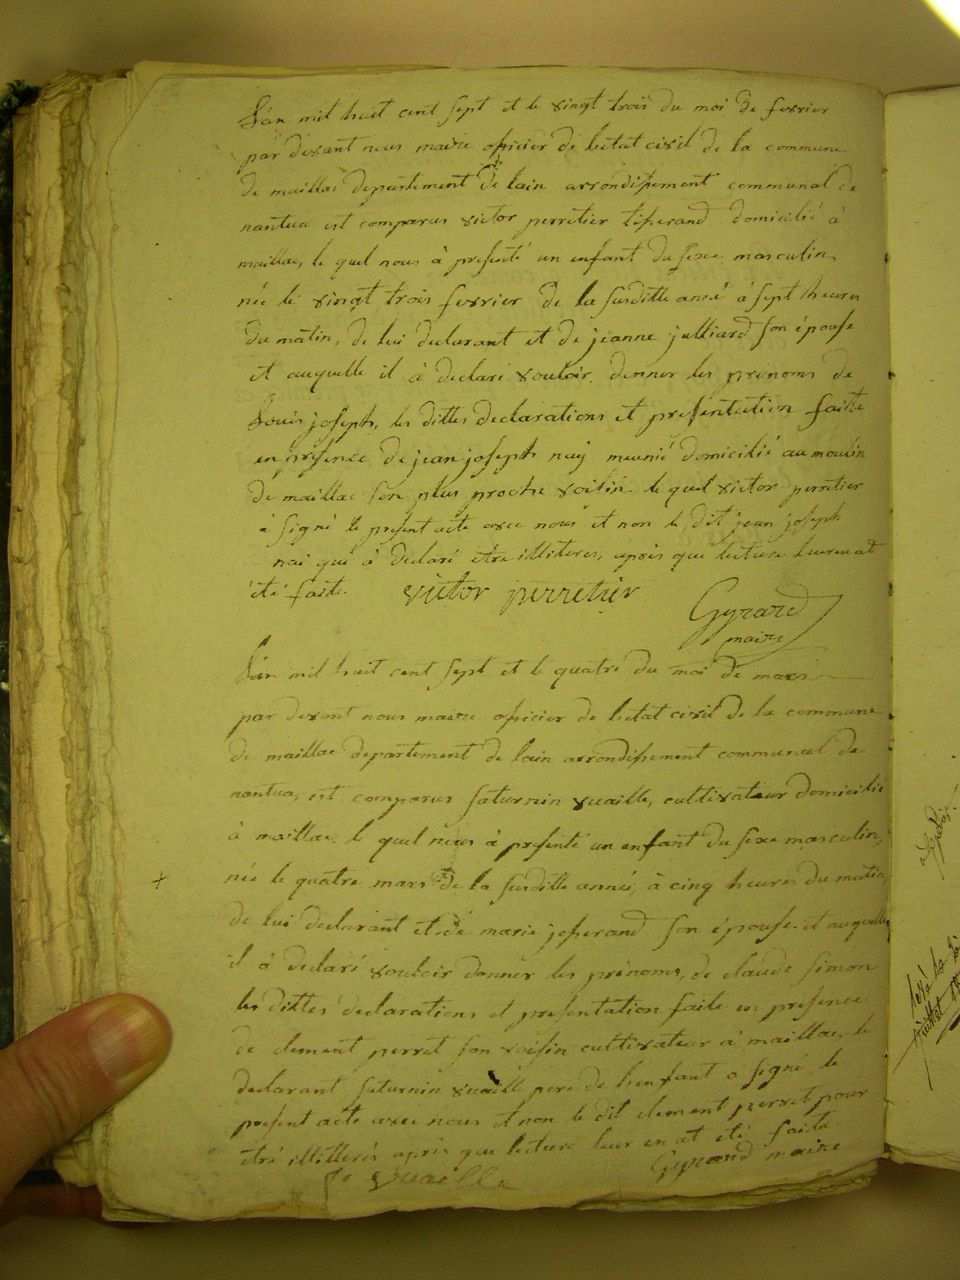 L'an mil huit cent sept et le vingt trois du moi de fevrier
par devant nous maire oficier de letat civil de la commune
de maillac departement de lain arrondissement communal de
nantua est comparus victor perretier tisserand domicilié à
maillac, le quel nous à presenté un enfant du sexe masculin,
née le vingt trois fevrier de la susditte anné à sept heures
du matin, de lui declarant et de jeanne julliard son épouse
et auquelle il à declaré vouloir donner les prenoms de
Louis joseph, les dittes declarations et presentation faitte
en presence de jean joseph nay meunié domicilié au moulin
de maillac son plus proche voisin le quel victor perretier
à signé le present acte avec nous et non le dit jean joseph
nai qui à declaré etre illiteres, apres que lecture leur en at
été faite. victor perretier
Gyrard
maire
L'an mil huit cent sept et le quatre du moi de mars
par devant nous maire oficier de letat civil de la commune
de maillac departement de lain arrondissement communal de
nantua, est comparus saturnin vuaille, cultivateur domicilié
à maillac le quel nous à presenté un enfant du sexe masculin,
née le quatre mars de la susditte anné, à cinq heures du matin,
de lui declarant et de marie josserand son épouse et auquelle
il à declaré vouloir donner les prénoms, de claude simon
les dittes declarations et presentation faite en presence
de clement perret son voisin cultivateur à maillac, le
declarant saturnin vuaille pere de lenfant a signé le
present acte avec nous et non le dit clement perret pour
etre illitterés apres que lecture leur en at été faite
Gyrard maire
vuaille